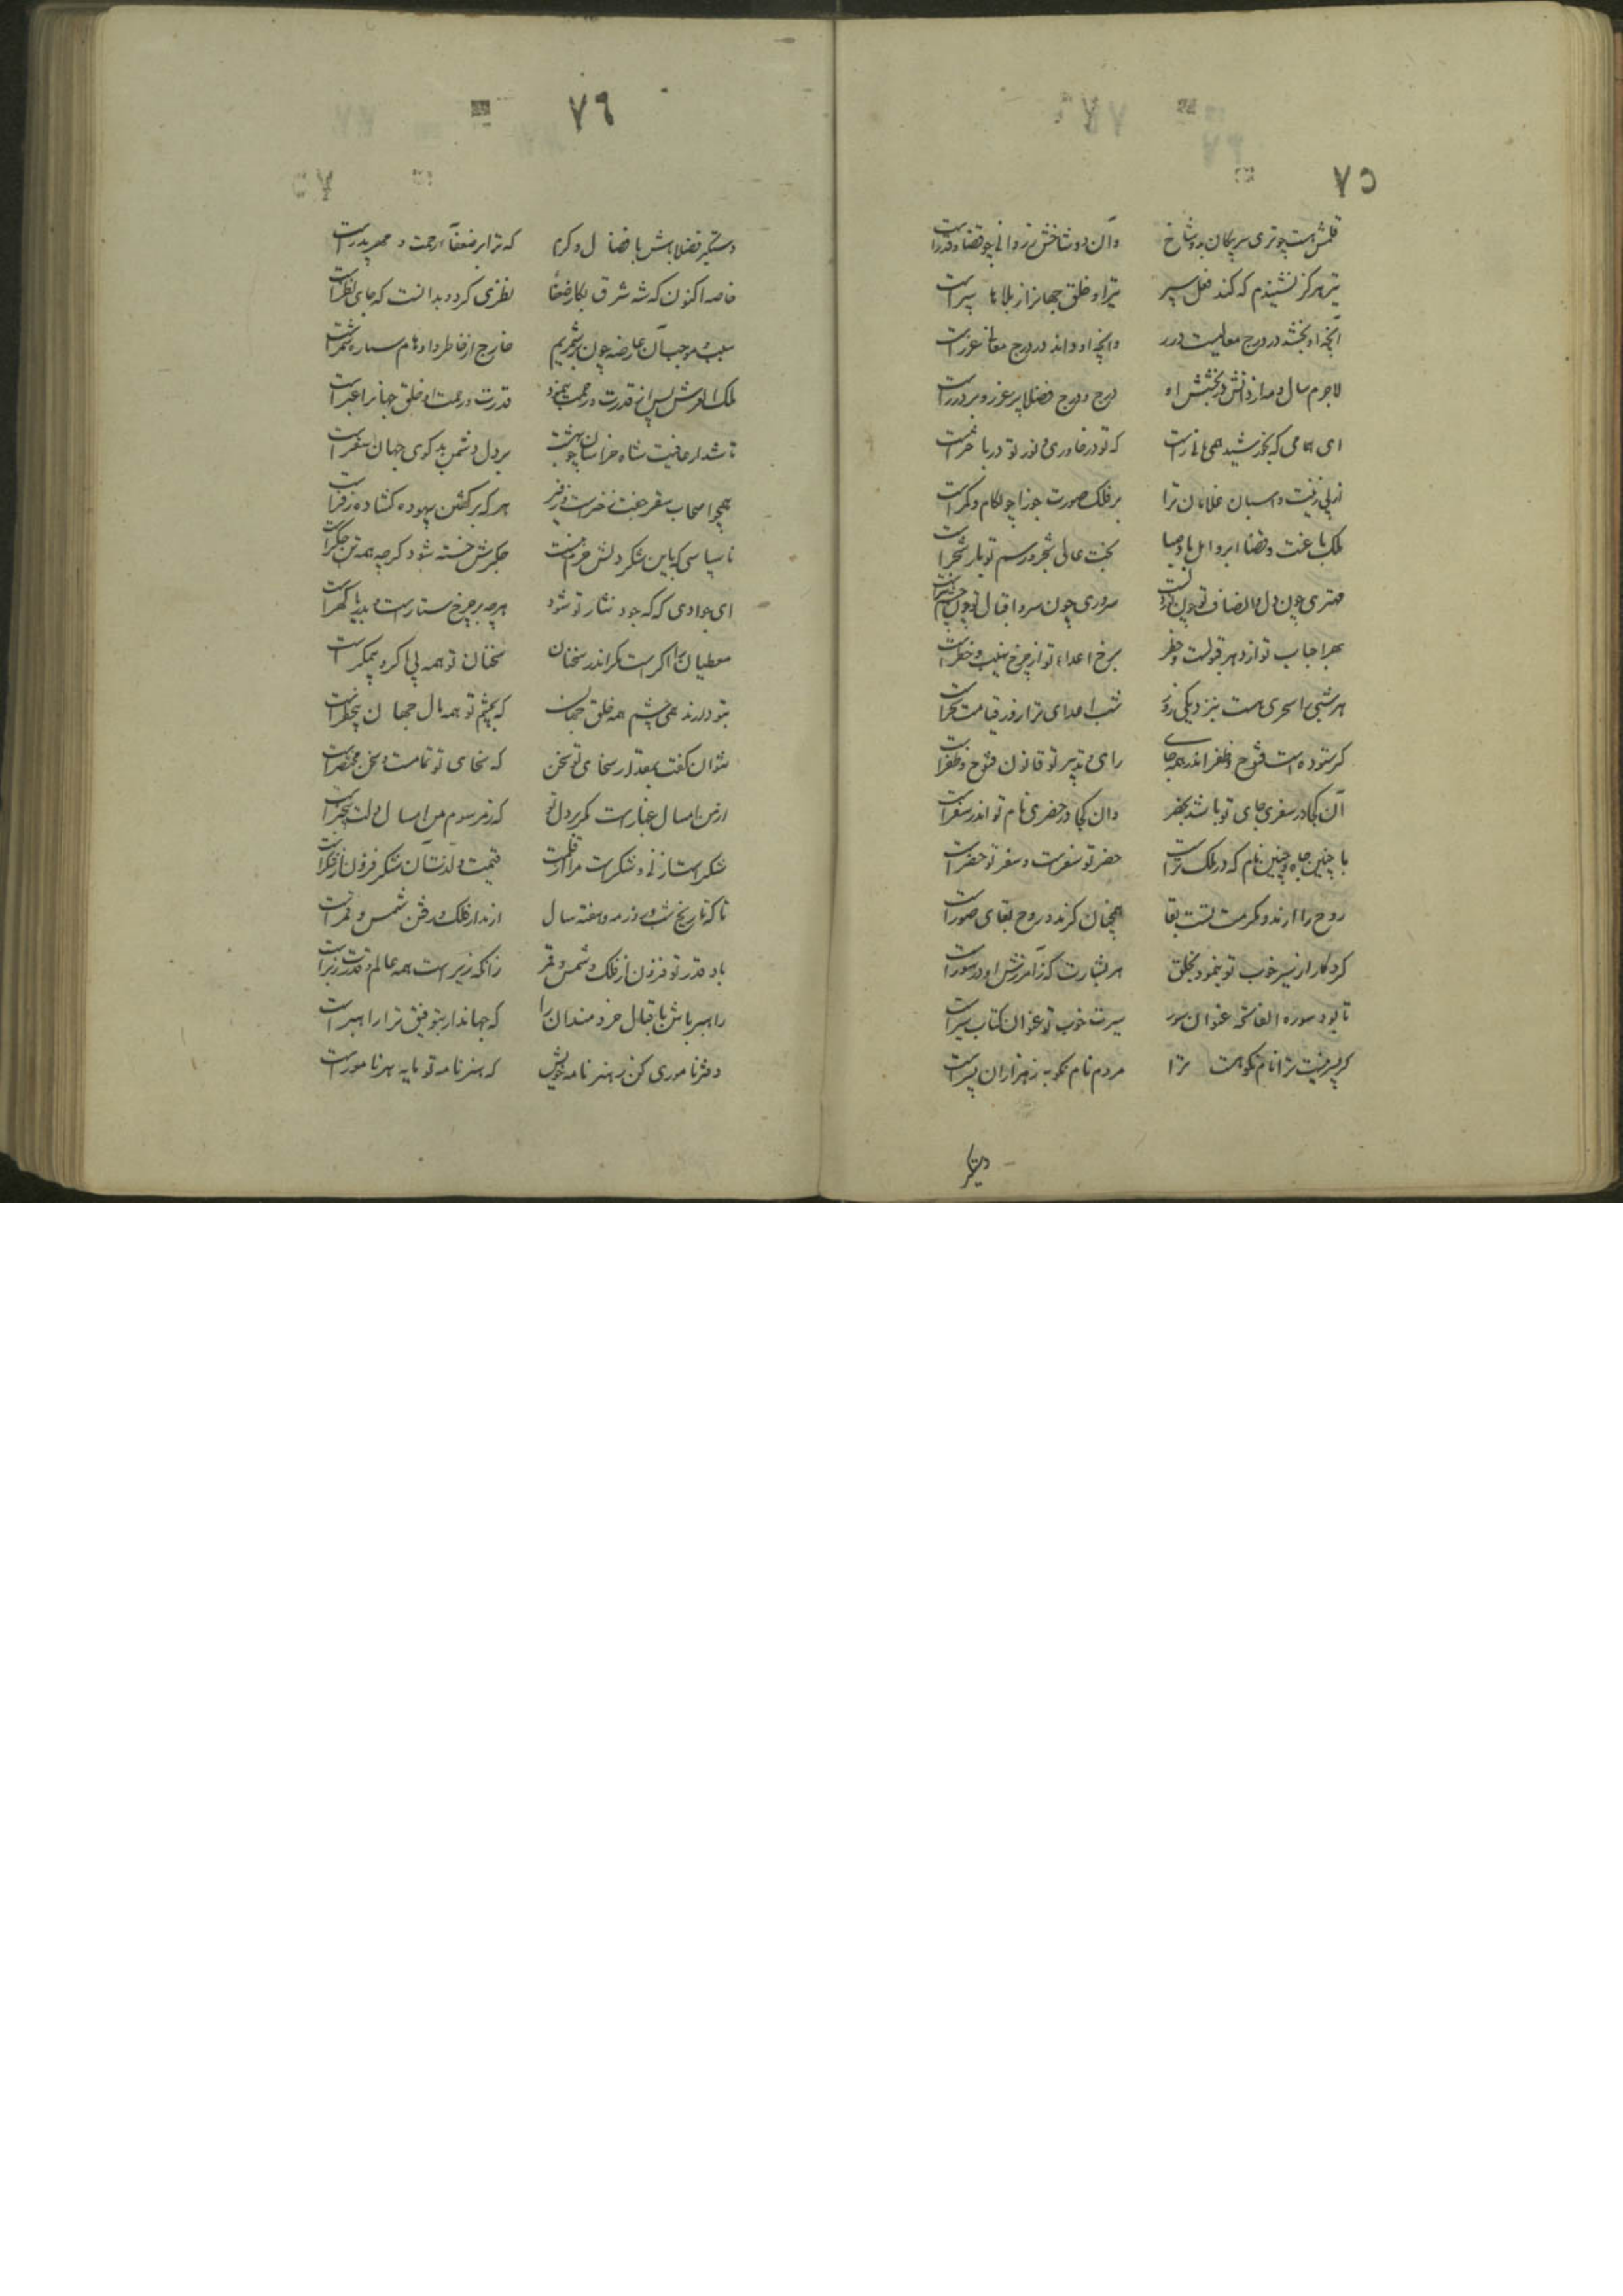 ٧٥
قلمش هست چو تیری سر پیکان بدو شاخ وان دو شاخش ز روانی چو قضا و قدر است
تیر هرگز نشنیدم که کند فعل سپر تیر او خلق جهانرا ز بلاها سپر است
آنچه او بخشد در درج معالیست درر وانچه او داند در درج معانی غرر است
لاجرم سال و مه از دانش و بخشش او درج و درج فضلا پر غرر و پر درر است
ای همامی که بخورشید همی مانی راست که تو در خاوری و نور تو در باختر است
از پی زینت و اسبان غلامان ترا بر فلک صورت جوزا چو لگام و کمر است
ملک باغست و قضا ابر و امل باد صبا بخت عالی شجر و رسم تو بار شجر است
مهتری چون دل و انصاف تو چون سروری چون سر و اقبال تو چون
بهر احباب تو از دهر قبولست و ظفر بهر اعداء تو از چرخ نهیب و خطر است
هر شبی را سحری هست بنزدیکی روز شب اعدای ترا روز قیامت سحر است
گر ستوده است فتوح و ظفر اندر همه جای رای و تدبیر تو قانون فتوح و ظفر است
آن کجا در سفری جای تو باشد بحضر وان کجا در حضری نام تو اندر سفر است
با چنین جاه و چنین نام که در ملک تراست حضر تو سفرست و سفر تو حضر است
روح را ارند و مکرمت تست بقا همچنان کز مدد روح بقای صور است
کردگار از سیر خوب تو بنمود بخلق هر بشارت که ز آمرزش او در سور است
تا بود سوره الفاتحه عنوان سور سیرت خوب تو عنوان کتاب سیر است
گر پسر نیست ترا نام نکو هست ترا مردم نام نکو به ز هزاران پسر است
دیگر
٧٦
دستگیر فضلا باش بافضال و کرم که ترا بر ضعفا رحمت و مهر پدر است
خاصه اکنون که شه شرق بکار ضعفا نظری کرد و بدانست که جای نظر است
سبب و موجب آن عارضه چون برشمریم خارج از خاطر و اوهام ستاره شمر است
ملک العرش پس از قدرت و رحمت بنمود قدرت و رحمت او خلق جهانرا عبر است
تا شد از عافیت شاه خراسان چو بهشت بر دل دشمن بدگوی جهان سقر است
همچو اصحاب سقر جفت زفیر هر که بر گفتن بیهوده گشاده زفر است
ناسپاسی که باین شکر دلش خرم نیست جگرش خسته شود گرچه همه تن جگر است
ای جوادی که گه جود نثار تو شود هرچه بر چرخ ستارست و بدریا گهر است
معطیان را اگرست مگر اندر سخنان سخنان تو همه بی اگر و بی مگر است
بتو دارند همی چشم همه خلق جهان که بچشم تو همه مال جهان بیخطر است
نتوان گفت بمقدار سخای تو سخن که سخای تو تمامست و سخن مختصر است
از من امسال غبارست مگر بر دل تو که ز مرسوم من امسال دلت بیخبر است
شکر است از نی و شکرست مرا از قلمت قیمت و لذت آن شکر فزون از شکر است
تا که تاریخ شب و روز و مه و هفته و سال از مدار فلک و رفتن شمس و قمر است
باد قدر تو فزون از فلک و شمس و قمر زانکه زیر است همه عالم و قدرت زبر است
راهبر باش باقبال خردمندان را که جهاندار بتوفیق ترا راهبر است
دفتر ناموری کن بهنر نامه خویش که هنرنامه تو مایه هر نامور است